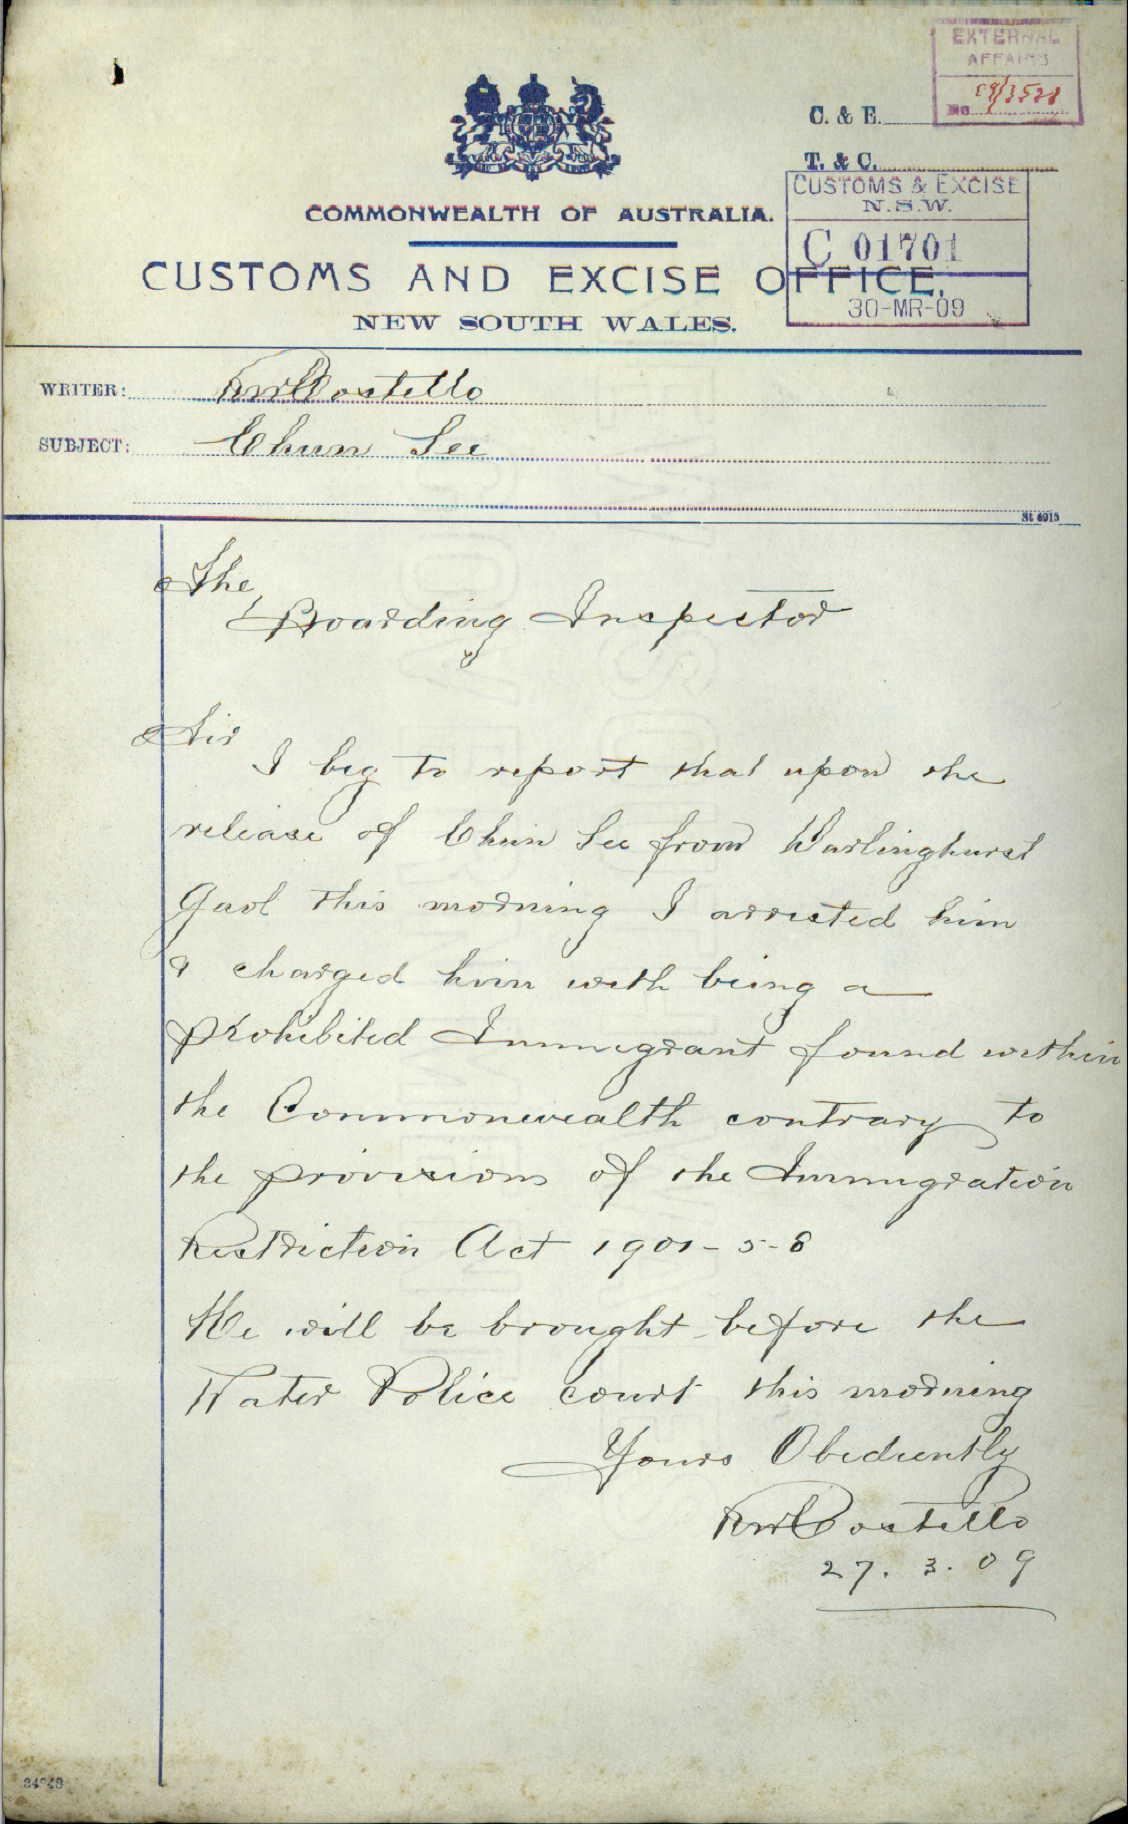 EXTERNAL
AFFAIRS
No 09/3528
C. & E.
T. & C.
CUSTOMS & EXCISE
N.S.W.
C 01701
30-MR-09
COMMONWEALTH OF AUSTRALIA.
CUSTOMS AND EXCISE OFFICE,
NEW SOUTH WALES.
WRITER: Costello
SUBJECT: Chun See
St 4915
The
Boarding Inspector
Sir
I beg to report that upon the
release of Chun See from Darlinghurst
Gaol this morning I arrested him
& charged him with being a
prohibited Immigrant found within
the Commonwealth contrary to
the provisions of the Immigration
Restriction Act 1901-5-8
He will be brought before the
Water Police court this morning
Yours Obediently
Costello
27.3.09